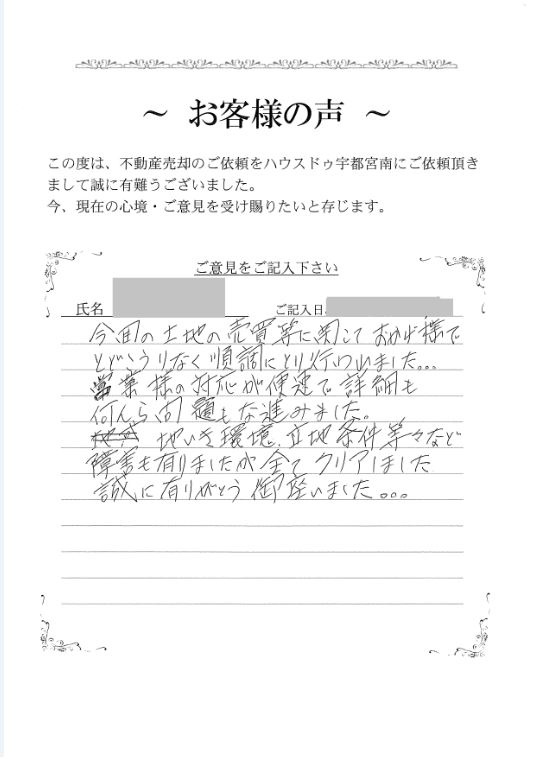 ～ お客様の声 ～
この度は、不動産売却のご依頼をハウスドゥ宇都宮南にご依頼頂き
まして誠に有難うございました。
今、現在の心境・ご意見を受け賜りたいと存じます。
ご意見をご記入下さい
氏名
ご記入日
今回の土地の売買等に関して おかげ様で
とどこうりなく順調にとり行つ いました。。。
営業様の対応が便速で 詳細も
何んら問題もな進みました。
地いき環境、立地条件等々など
障害も有りましたが 全て クリアしました
誠に有りがとう御座いました。。。